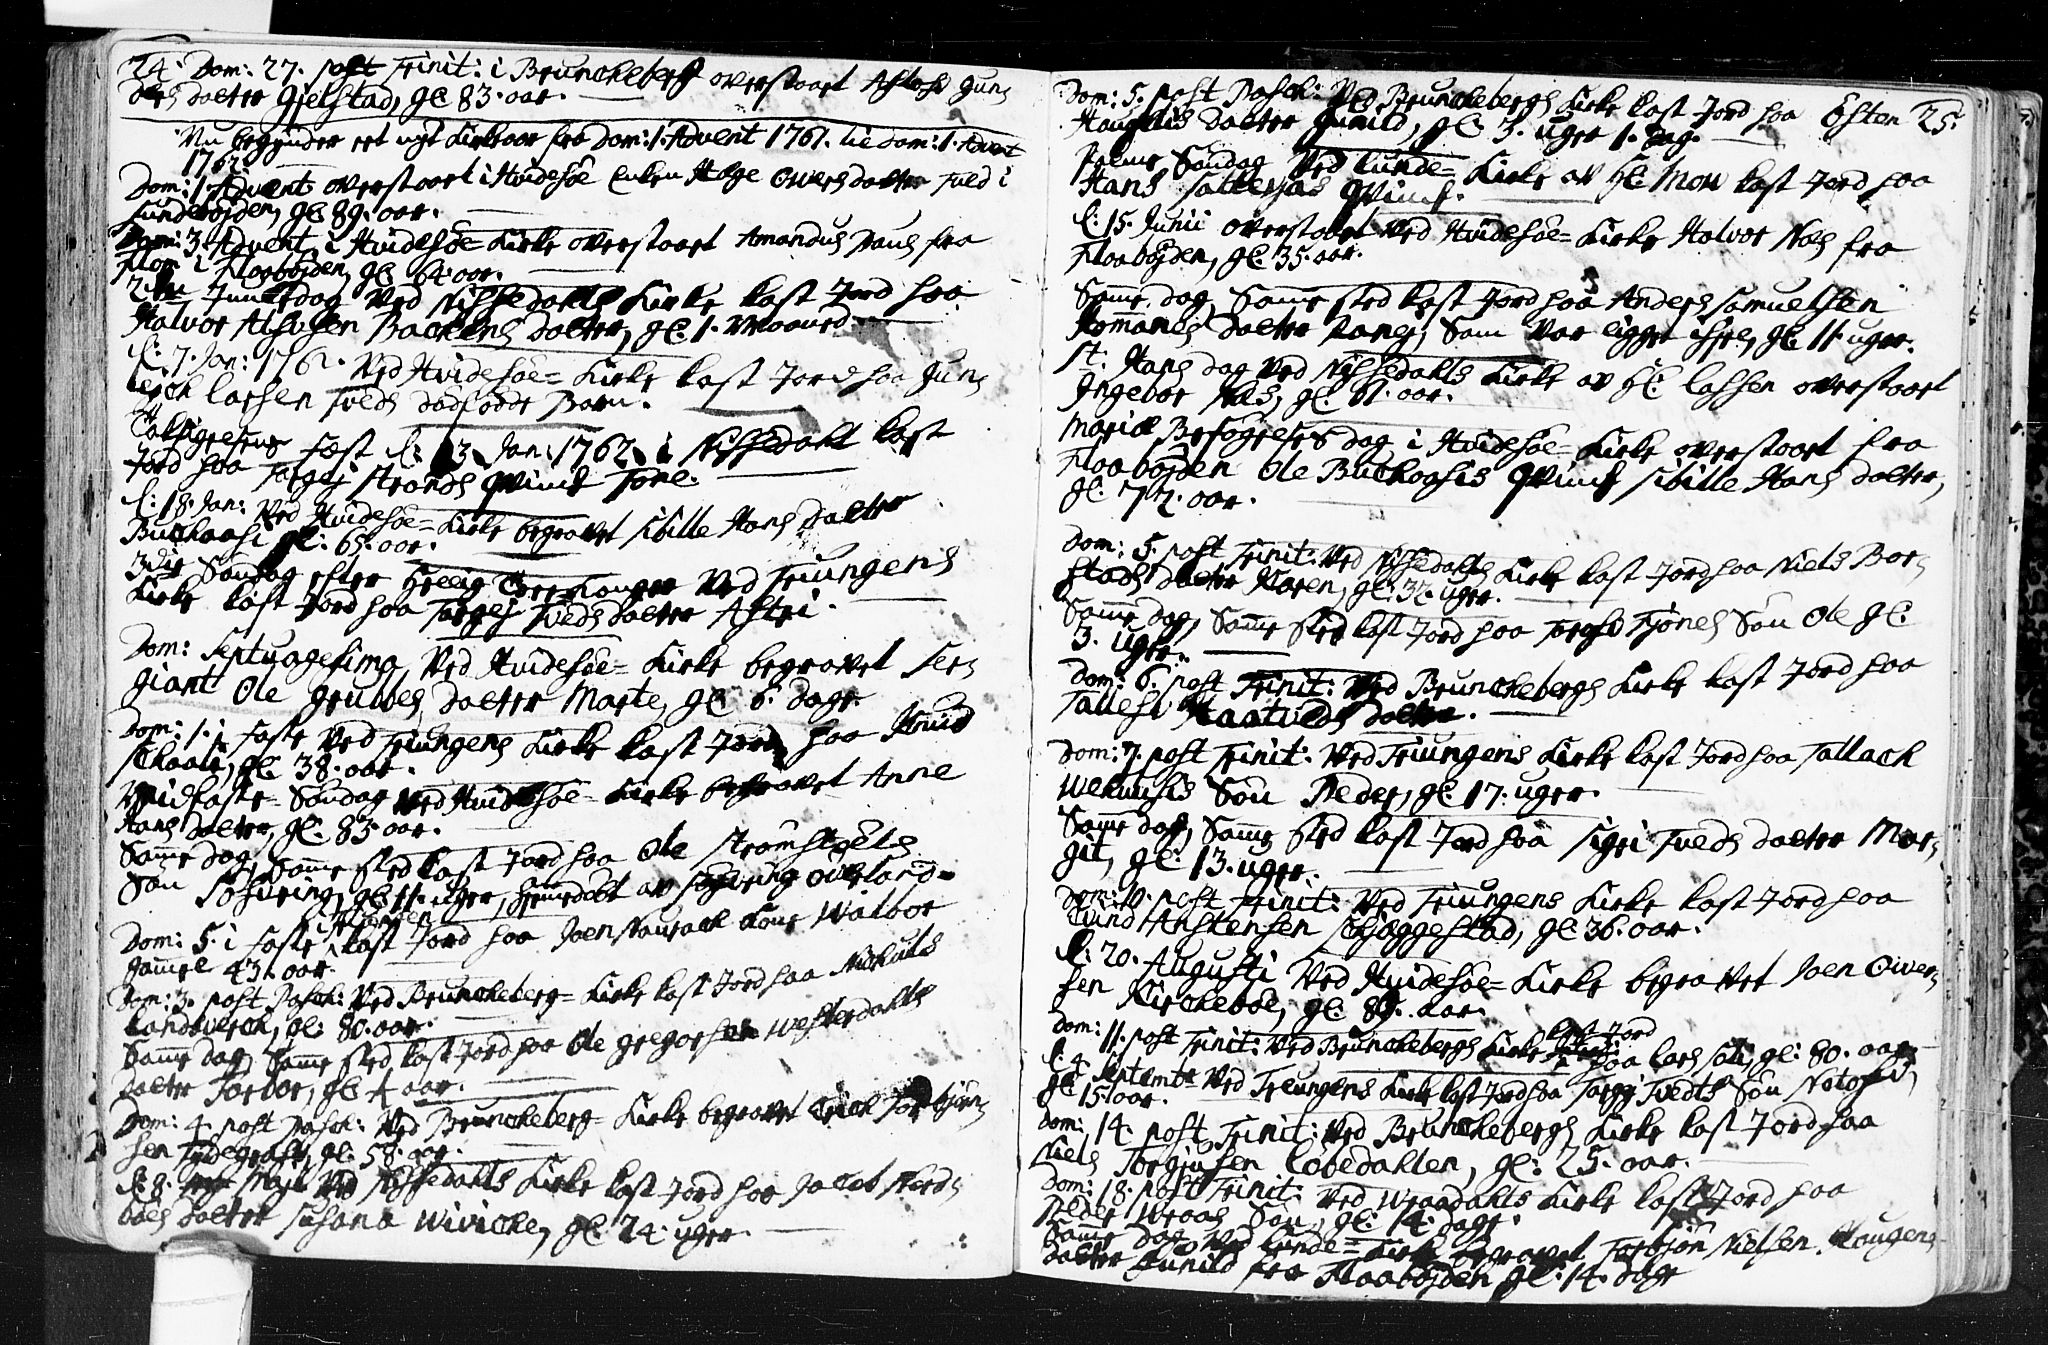 24. Dom: 27. post Trinit: i Brunckeberg overstaaet Aslovs Gun
ders daatter Gjelstad, gl: 83. aar.
Nu begynder et nyt Kirkeaar fra Dom: 1. Advent 1761. til Dom: 1. Advent
1762.
Dom: 1. Advent overstaaet i Hvidesöe Enken Aage Overs daatter Tved i
Sundebögden, gl: 89. aar.
Dom: 3. Advent i Hvidesöe Kirke overstaaet Amandus Paus fra
Flom i Flaabögden, gl: 64. aar.
2den Juuledag ved Nissedahls Kirke kast Jord paa
Halvor Alsvsen Backens daatter, gl: 1. Maaned
d: 7. Jan: 1762. Ved Hvidesöe Kirke kast Jord paa Gun
leich Larsen Tveds dödfödde Barn.
Taksigelsens Fest d: 13. Jan: 1762. i Nissedahl kast
Jord paa Torgej Strands Qvinde Tone.
d: 18. Jan: Ved Hvidesöe Kirke begravet Sibille Hans daatter
Buchaasi gl: 65. aar.
3die Söndag efter Hellig Tree Konger Ved Triungens
Kirke kast Jord paa Torgej Tveds daatter Astri.
Dom: Septuagesima, Ved Hvidesöe Kirke begravet Ser
giant Ole Grubbes daatter Marte, gl: 6. dage.
Dom: 1. i Faste Ved Triungens Kirke kast Jord paa Knud
Skaali, gl: 38. aar.
Midfaste Söndag Ved Hvidesöe Kirke begravet Anne
Hans daatter, gl: 83. aar.
Samme dag, Samme sted kast Jord paa Ole Strömstöels
Sön Solvring, gl: 11. uger,
Dom: 5. i Faste kast Jord paa Joen Naurach Kone Walbor
gammel 43. aar.
Dom: 3. post Pasch: Ved Brunckeberg Kirke kast Jord paa
Landsverch, gl: 80. aar.
Samme dag, Samme sted kast Jord paa Ole Gregorsen Westerdahls
daatter Torbor, gl: 4 aar.
Dom: 4. post Pasch: Ved Brunckeberg Kirke begravet Erich Torbjörn
sen Tydegraft, gl: 58. aar.
d: 8. Maji Ved Nissedahls Kirke kast Jord paa Jacob
daatter Susana Wiviche, gl: 24. uger.
Dom: 5. post Pasch: Ved Brunckebergs Kirke kast Jord paa Östen 25.
Haugelis daatter Gunild, gl: 3. uger 1. dag.
Palme Söndag Ved Lunde Kirke av Hl: Mou kast Jord paa
Hans Qvinde.
d: 15. Junii overstaaet Ved Hvidesöe Kirke Halvor Næs fra
Flaabögden, gl: 35. aar.
Samme dag, Samme sted kast Jord paa Anders Samuelsen
daatter som var ligget ihjel, gl: 11. uger.
St: Hans dag Ved Nissedahls Kirke av Hl: Lassen overstaaet
Ingebor Næs, gl: 61. aar.
Mariæ Besögelses dag i Hvidesöe Kirke overstaaet fra
Flaabögden Ole Buchaasis Qvinde Sibille Hans daatter,
gl: 72. aar.
Dom: 5. post Trinit: Ved Nissedahls Kirke kast Jord paa Niels Bor
stads daatter Karen, gl: 32. uger.
Samme dag, Samme sted kast Jord paa Torgsd Tjönes Sön Ole gl:
3. uger.
Dom: 6. post Trinit: Ved Brunckebergs Kirke kast Jord paa
Tallesv Haatveds daatter.
Dom: 7. post Trinit: Ved Triungens Kirke kast Jord paa Tallach
Sön Peder, gl: 17. uger.
Samme dag, Samme sted kast Jord paa Sigri Tveds daatter Mar
git, gl: 13. uger.
Dom: 10. post Trinit: Ved Triungens Kirke kast Jord paa
Eivind Anstensen Skjæggestad, gl: 36. aar.
d: 20. Augusti Ved Hvidesöe Kirke begravet Joen Over
sen Kirckeböe, gl: 89. aar.
Dom: 11. post Trinit: Ved Brunckebergs Kirke kast Jord paa Lars Soli, gl: 80. aar.
d: 4. Septembr Ved Treungens Kirke kast Jord paa Torgej Tvedts Sön
gl: 15. aar.
Dom: 14. post Trinit: Ved Brunckebergs Kirke kast Jord paa
Niels Torgjusen Löbedahlen, gl: 25. aar.
Dom: 18. post Trinit: Ved Wraadahls Kirke kast Jord paa
Peder Wraas Sön, gl: 14. dage.
Samme dag Ved Lunde Kirke begravet Torbjön Nielsen Haugens
daatter Gunild fra Flaabögden gl: 14. dage